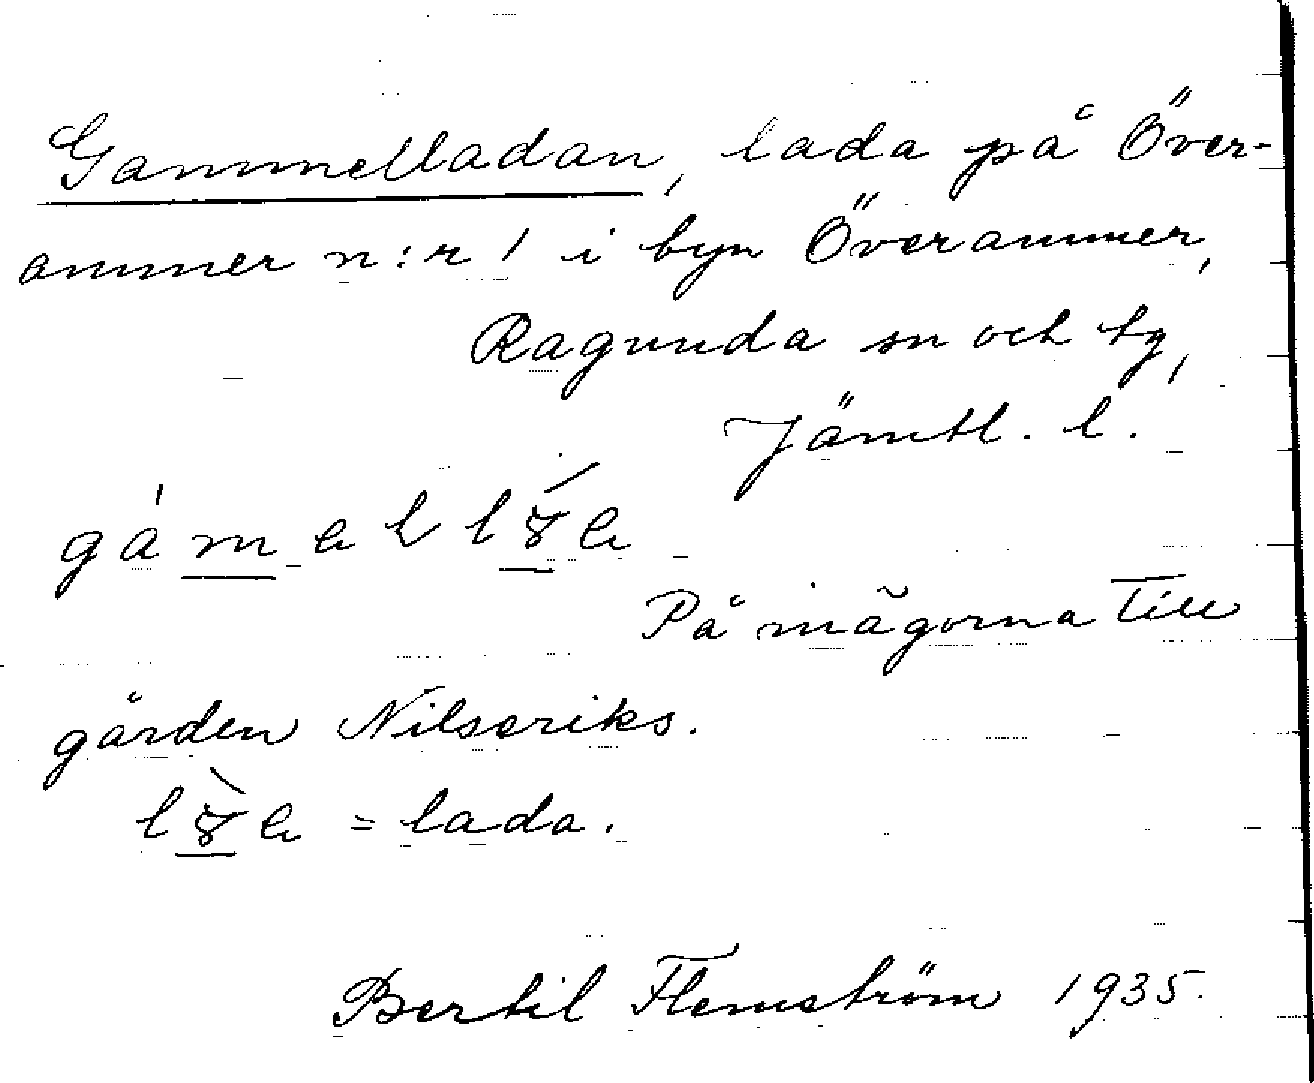 Gammelladan, lada på Över-
ammer n:r 1 i byn Överammer,
Ragunda sn och tg,
Jämtl. l.
På inägorna till
gården Nilseriks.
= lada.
Bertil Flemström 1935.